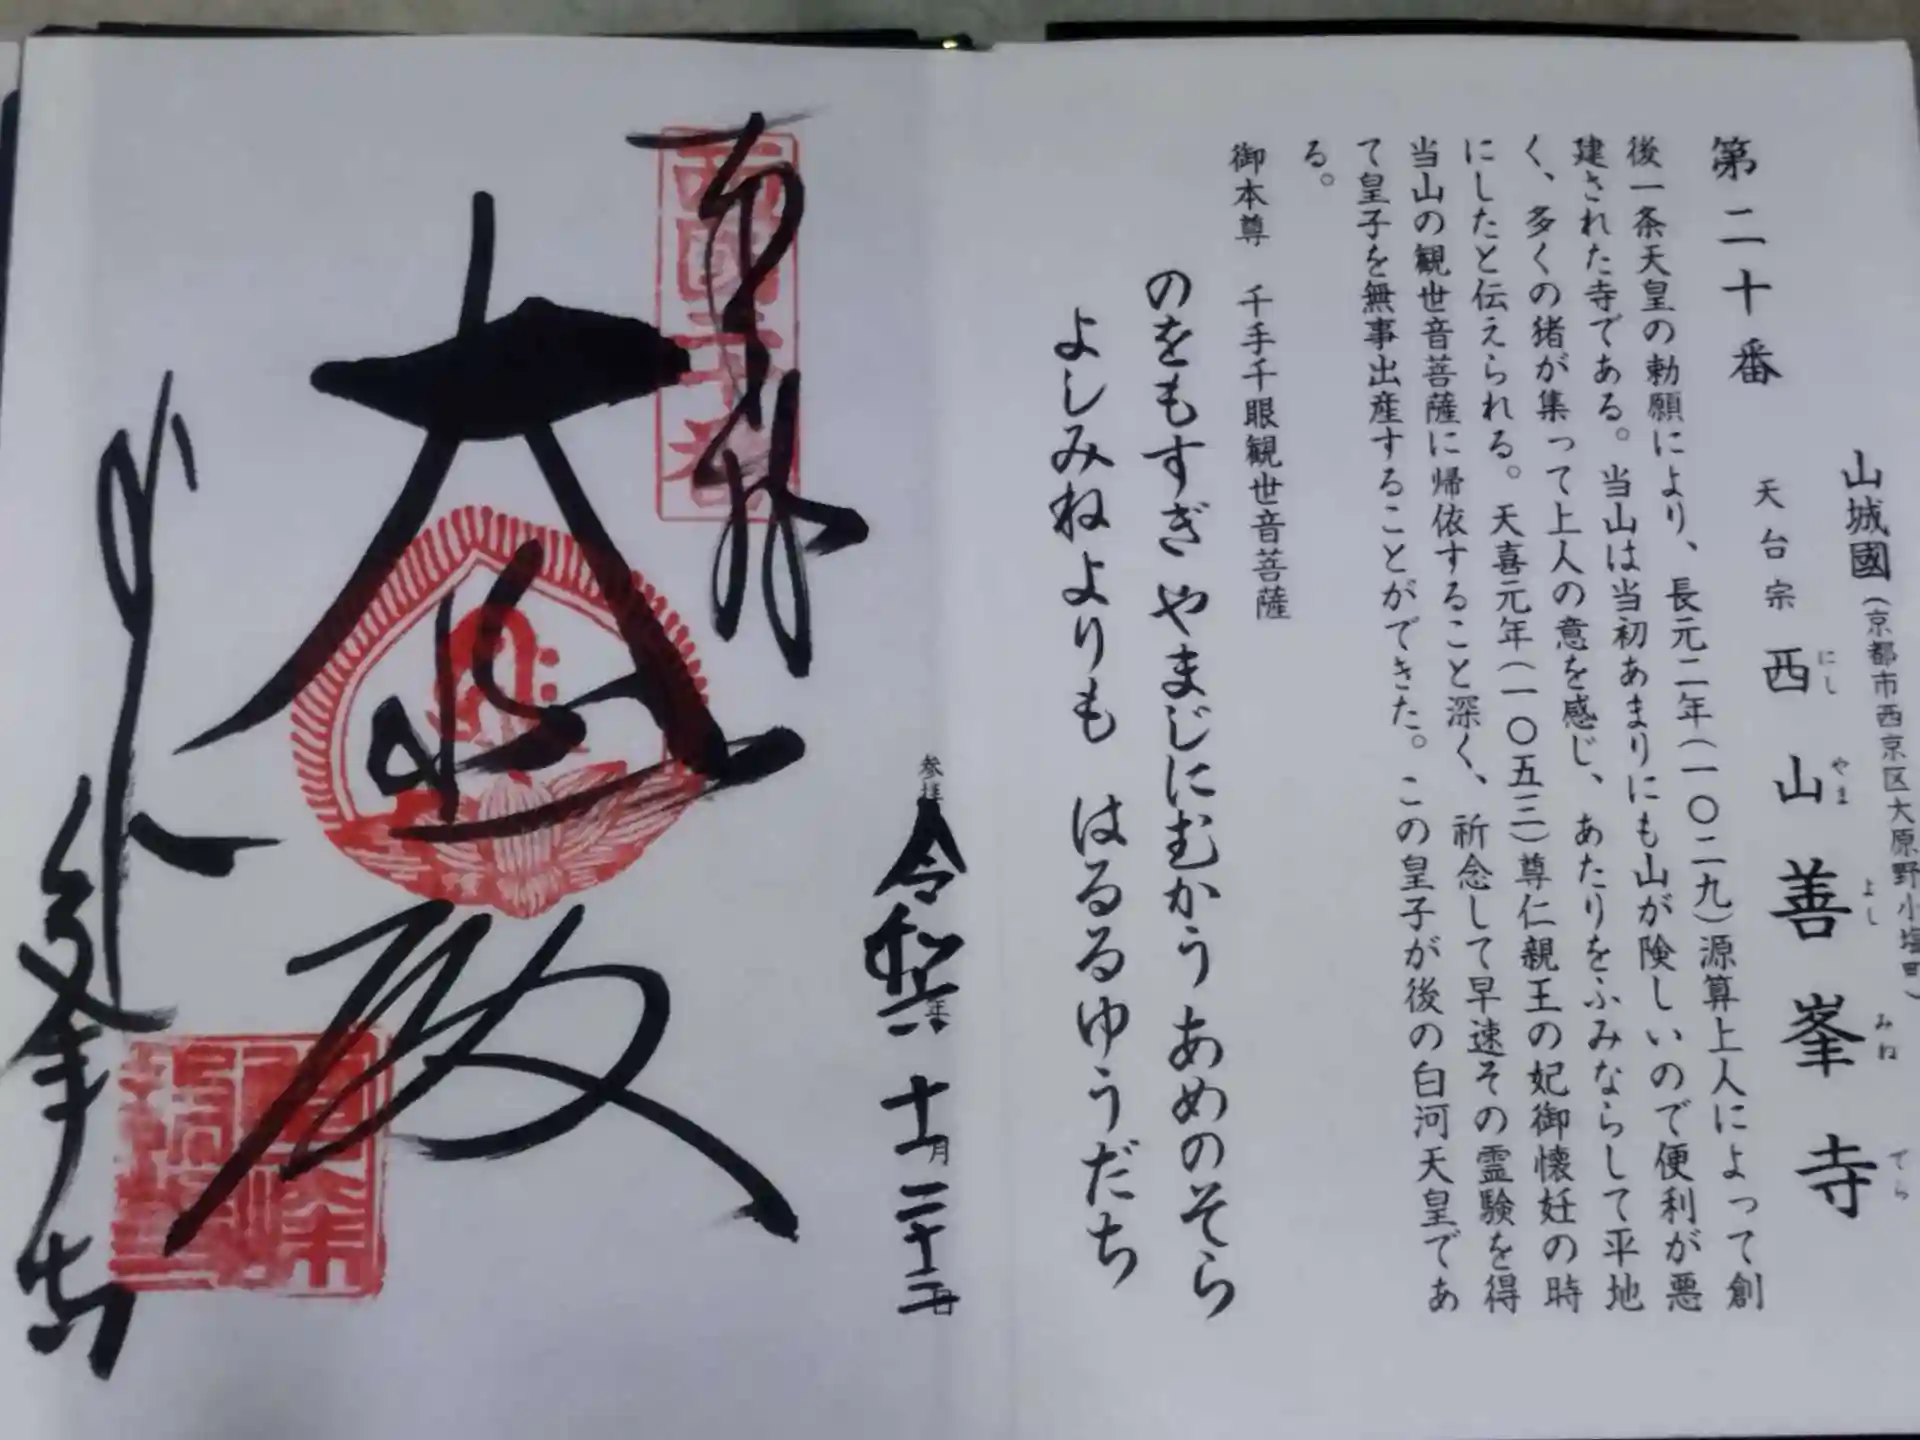 山城國(京都市西京区大原野小塩町)
第二十番 天台宗 西山善峯寺
にし やま よし みね でら
後一条天皇の勅願により、長元二年(一〇二九)源算上人によって創
建された寺である。当山は当初あまりにも山が険しいので便利が悪
く、多くの猪が集って上人の意を感じ、あたりをふみならして平地
にしたと伝えられる。天喜元年(一〇五三)尊仁親王の妃御懐妊の時
当山の観世音菩薩に帰依すること深く、祈念して早速その霊験を得
て皇子を無事出産することができた。この皇子が後の白河天皇であ
る。
御本尊 千手千眼観世音菩薩
のをもすぎ やまじにむかう あめのそら
よしみねよりも はるるゆうだち
参拝 令和六年 十一月 二十三日
奉拝
西國二十番
大悲殿
善峯寺